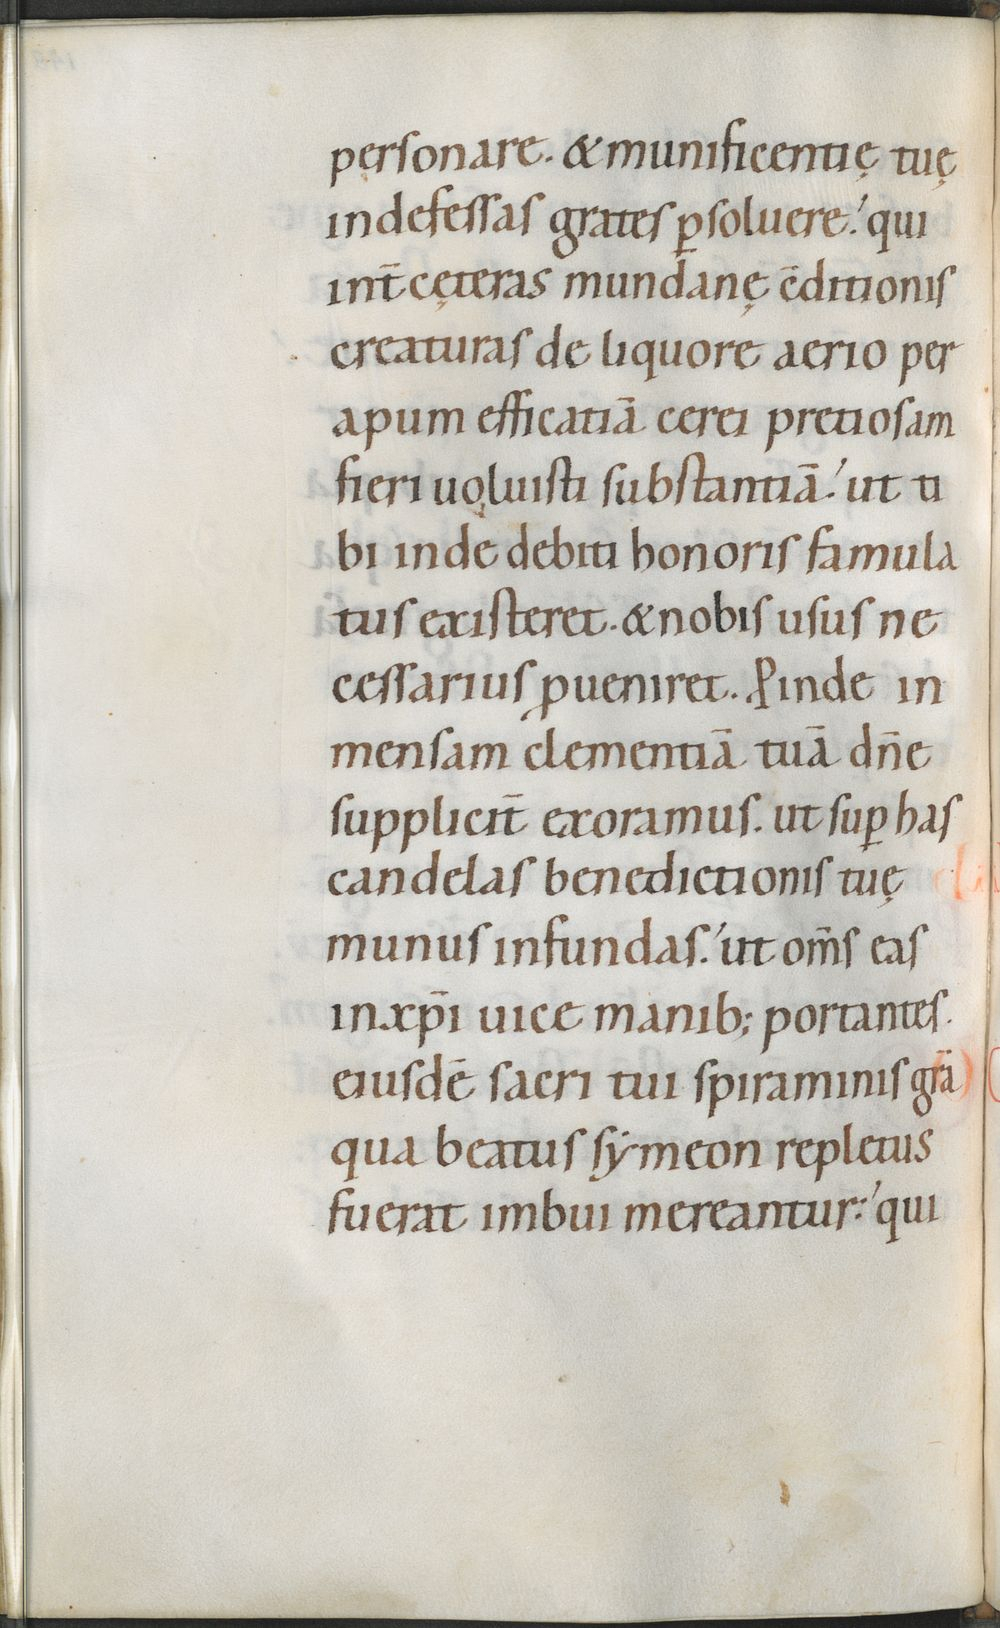 personare. & munificentię tuę
indefessas grates ꝑsoluere. qui
int̄ cęteras mundanę c̄ditionis
creaturas de liquore aerio per
apum efficatiā cerei pretiosam
fieri uoluisti substantiā. ut ti
bi inde debiti honoris famula
tus existeret. & nobis usus ne
cessarius ꝓueniret. Ꝓinde in
mensam clementiā tuā dn̄e
supplicit̄ exoramus. ut suꝑ has
candelas benedictionis tuę
munus infundas. ut om̄s eas
in xp̄i uice manib; portantes.
eiusdē sacri tui spiraminis gr̄a
qua beatus sẏmeon repletus
fuerat imbui mereantur: qui